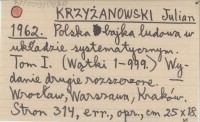 KRZYŻANOWSKI Julian
1962. Polska bajka ludowa w
układzie systematycznym.
Tom I. (Wątki 1-999.) Wy-
danie drugie rozszerzone.
Wrocław, Warszawa, Kraków.
Stron 314, err., opr., cm. 25x18.